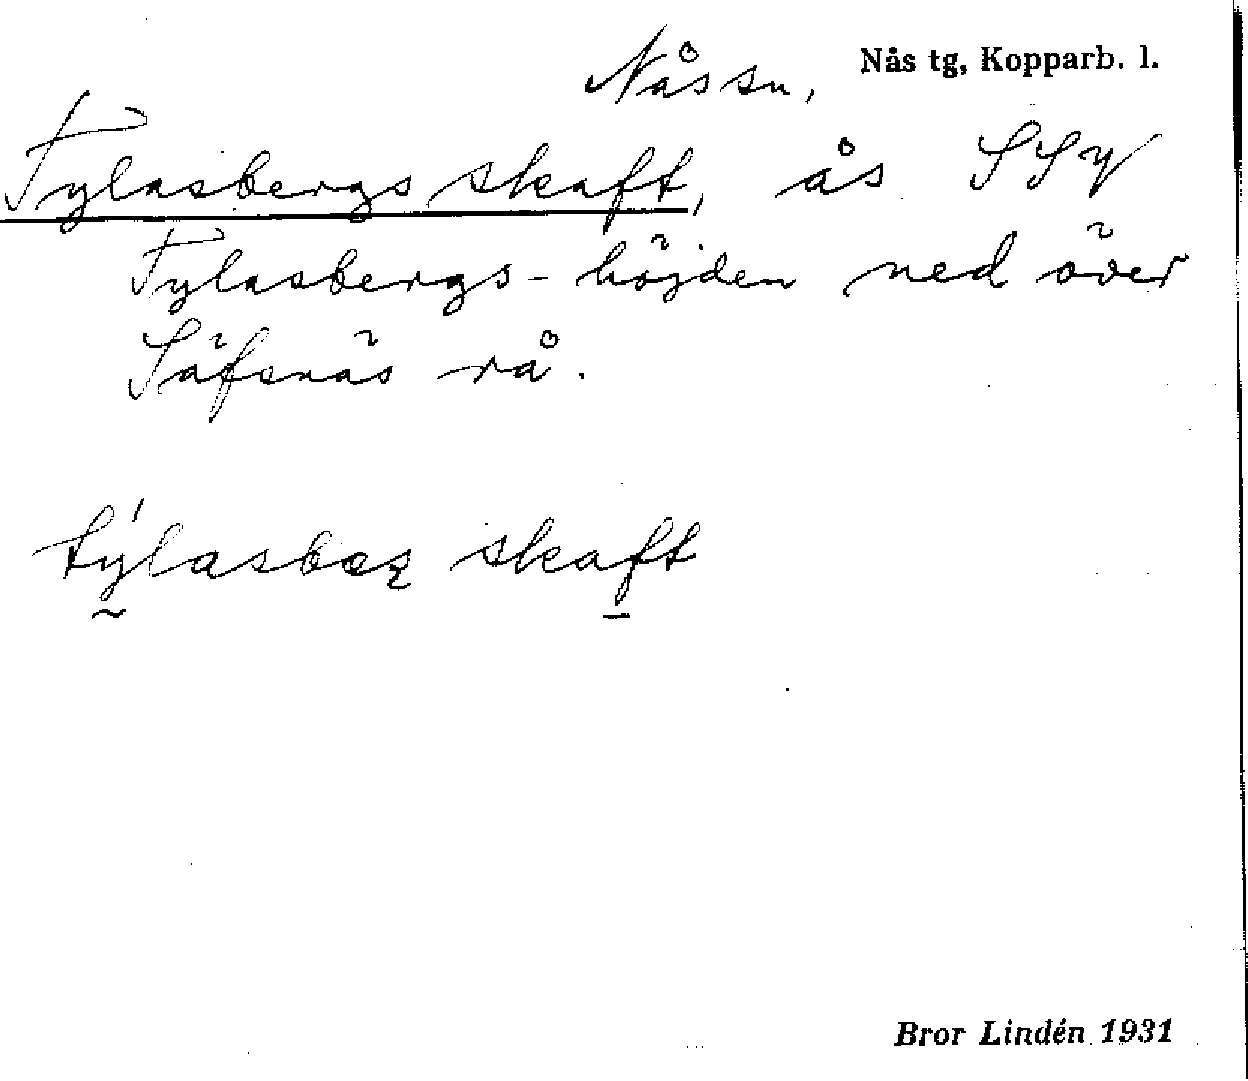 Nås sn, Nås tg, Kopparb. l.
Tylasbergs skaft, ås SSV
Tylasbergs-höjden ned över
Säfsnäs rå.
skaft
Bror Lindén 1931